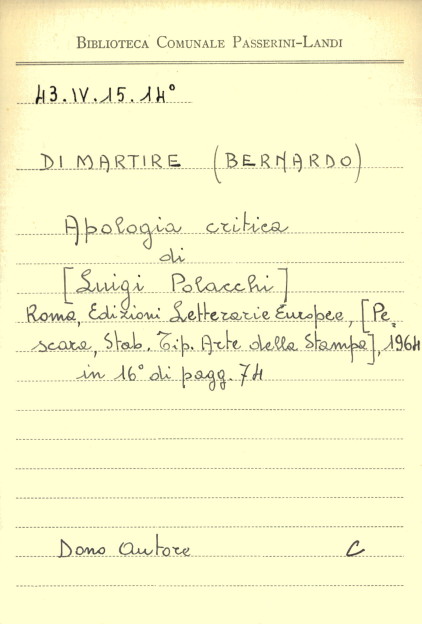 BIBLIOTECA COMUNALE PASSERINI-LANDI
43.IV.15.14°
DI MARTIRE (BERNARDO)
Apologia critica
di
[Luigi Polacchi]
Roma, Edizioni Letterarie Europee, [Pe=
scara, Stab. Tip. Arte della Stampa], 1964
in 16° di pagg. 74
Dono Autore C